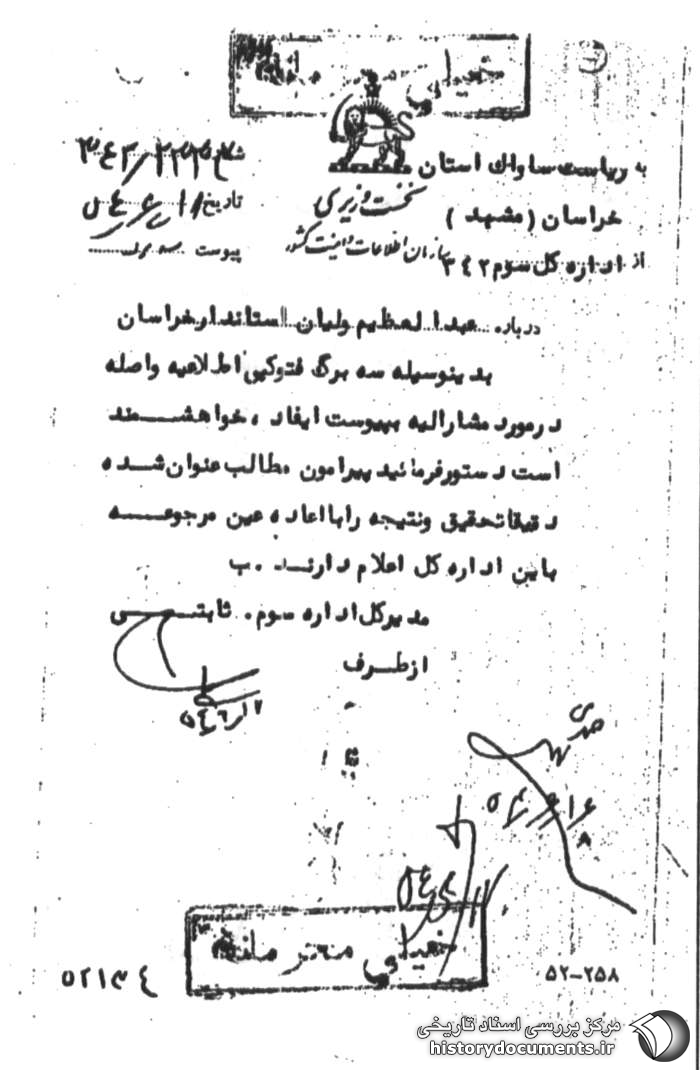 خیلی محرمانه
به ریاست ساواک استان
خراسان (مشهد)
از اداره کل سوم ۳۴۲
نخست وزیری
سازمان اطلاعات و امنیت کشور
شماره
تاریخ
پیوست سه برگ
درباره عبدالعظیم ولیان استاندار خراسان
بدینوسیله سه برگ فتوکپی اطلاعیه واصله
درمورد مشارالیه بپیوست ایفاد ، خواهشمند
است دستور فرمائید پیرامون مطالب عنوان شده
دقیقا تحقیق ونتیجه را با اعاده عین مرجوعه
باین اداره کل اعلام دارند . ب
مدیرکل اداره سوم . ثابتی
ازطرف
خیلی محرمانه
۵۲-۲۵۸
مرکز بررسی اسناد تاریخی
historydocuments.ir